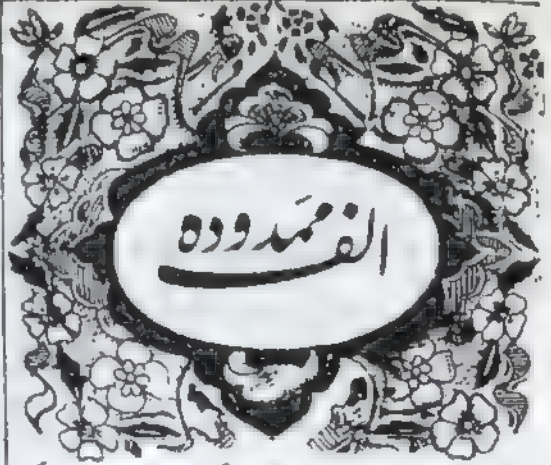 الف ممدوده